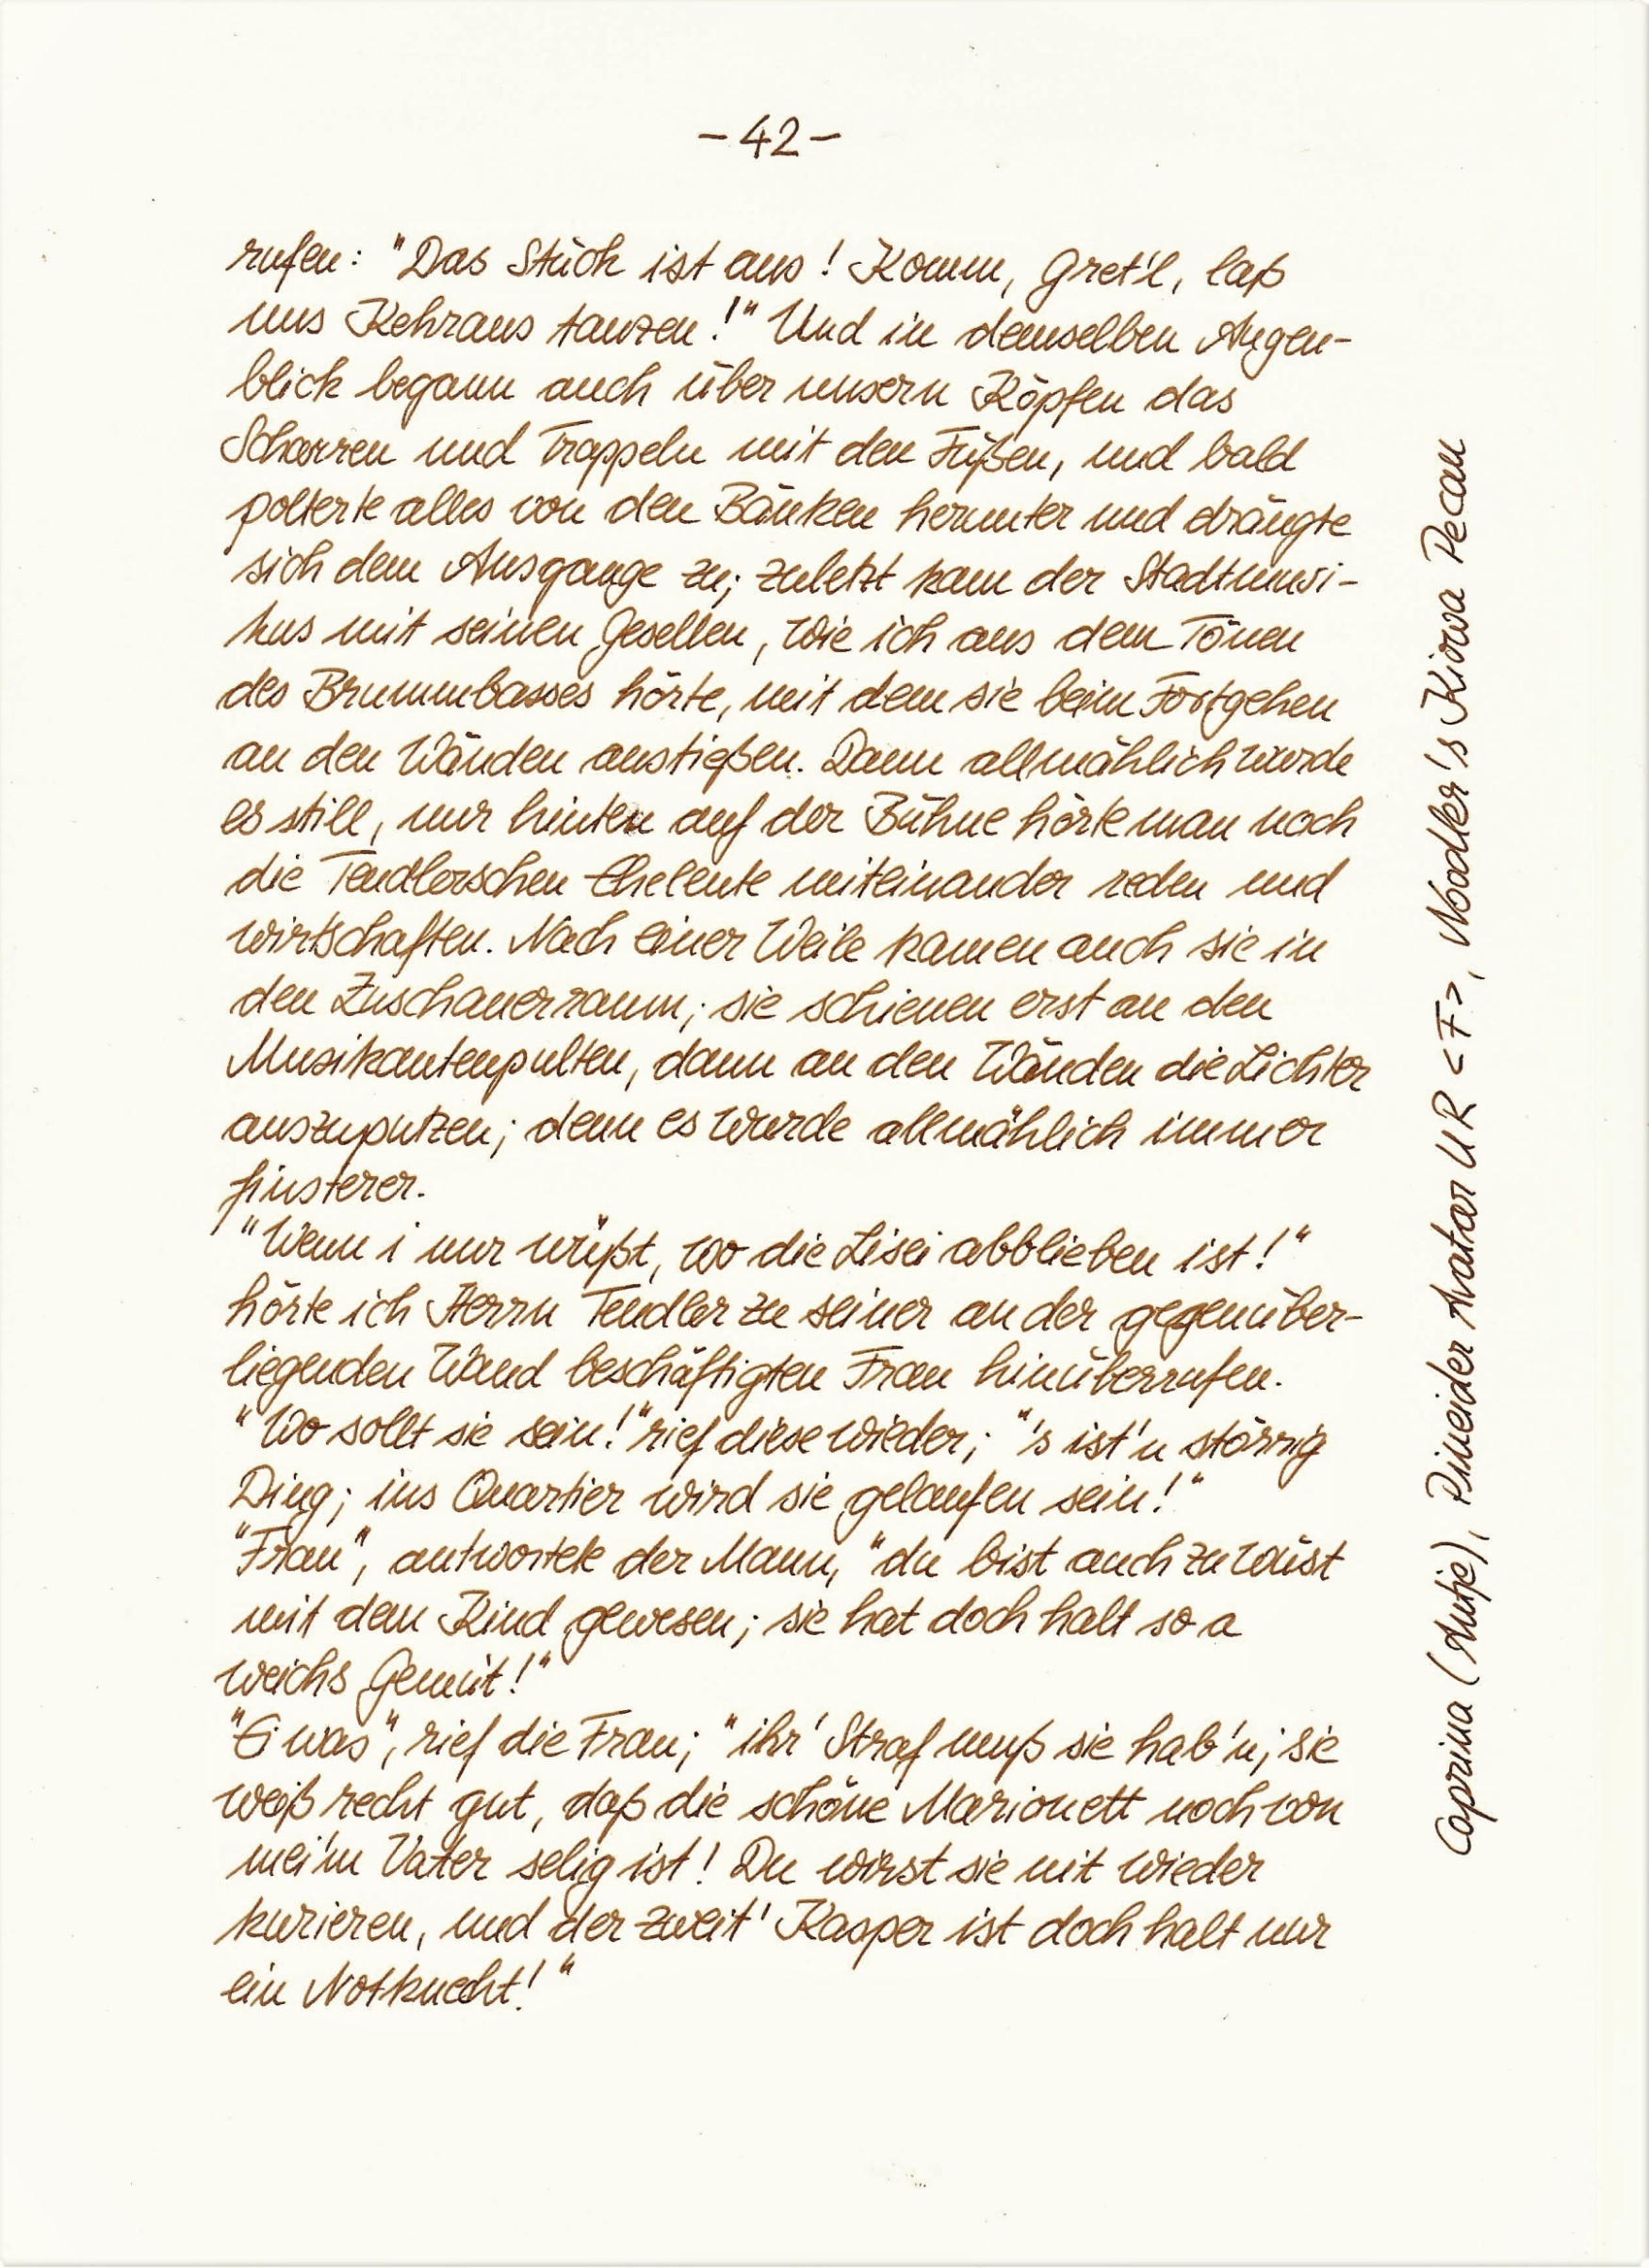 -42-
rufen: "Das Stück ist aus! Komm, Gret'l, laß
uns Kehraus tanzen!" Und in demselben Augen-
blick begann auch über unsern Köpfen das
Scharren und Trappeln mit den Füßen, und bald
polterte alles von den Bänken herunter und drängte
sich dem Ausgange zu; zuletzt kam der Stadtmusi-
kus mit seinen Gesellen, wie ich aus dem Tönen
des Brummbasses hörte, mit dem sie beim Fortgehen
an den Wänden anstießen. Dann allmählich wurde
es still, nur hinten auf der Bühne hörte man noch
die Tendlerschen Eheleute miteinander reden und
wirtschaften. Nach einer Weile kamen auch sie in
den Zuschauerraum; sie schienen erst an den
Musikantenpulten, dann an den Wänden die Lichter
auszuputzen; denn es wurde allmählich immer
finsterer.
"Wenn i nur wüßt, wo die Lisei abblieben ist!"
hörte ich Herrn Tendler zu seiner an der gegenüber-
liegenden Wand beschäftigten Frau hinüberrufen.
"Wo sollt sie sein!" rief diese wieder; "'s ist 'n störrig
Ding; ins Quartier wird sie gelaufen sein!"
"Frau", antwortete der Mann, "du bist auch zu wüst
mit dem Kind gewesen; sie hat doch halt so a
weichs Gemüt!"
"Ei was", rief die Frau; "ihr' Straf muß sie hab'n; sie
weiß recht gut, daß die schöne Marionett noch von
mei'm Vater selig ist! Du wirst sie nit wieder
kurieren, und der zweit' Kasper ist doch halt nur
ein Notknecht!"
Caprina (Antje), Pineider Avatar UR <F>, Noodler's Kiowa Pecan